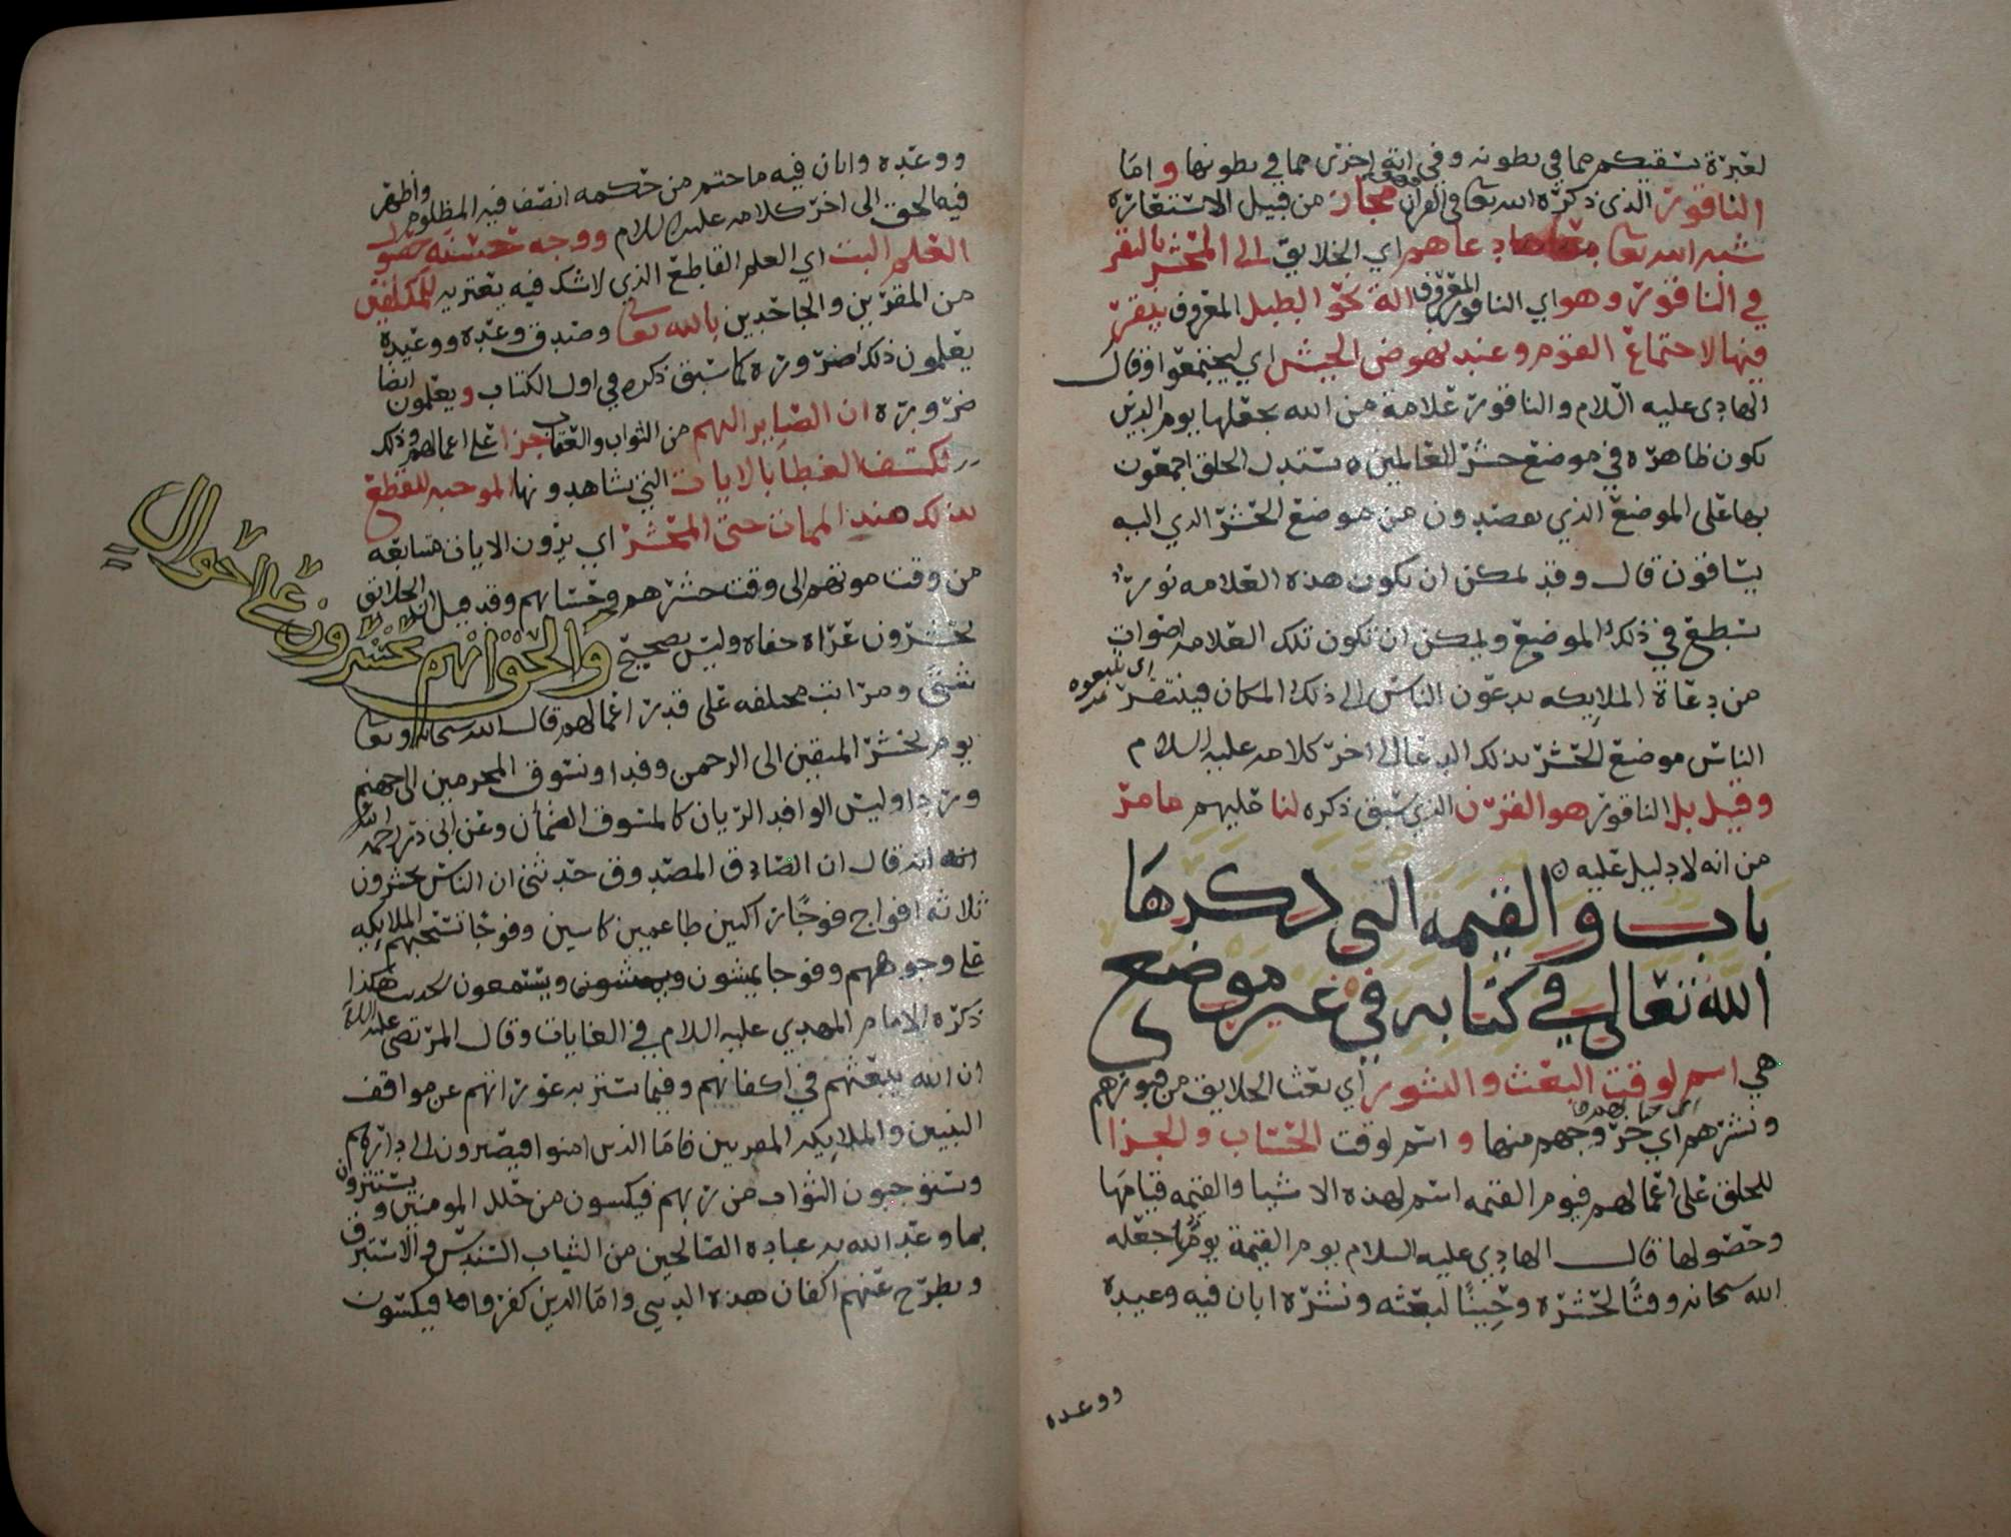 لعبرة نسقيكم مما في بطونه وفي اية اخرى مما في بطونها واما
الناقور الذي ذكره الله تعا في القران فهو مجاز من قبيل الاستعارة
شبه الله تعا دعاهم اي الخلايق الى المحشر بالنقر
في الناقور وهو اي الناقور المعروف الة نحو الطبل المعروف ينقر
فيها لاجتماع القوم وعند نهوض الجيش اي ليجتمعوا وقال
الهادي عليه السلام والناقور علامة من الله يجعلها يوم الدين
تكون ظاهره في موضع حشر للعالمين يستدل الخلق اجمعون
بها على الموضع الذي يقصدون من موضع الحشر الذي اليه
يساقون قال وقد يمكن ان تكون هذه العلامه نورا
يسطع في ذلك الموضع ويمكن ان تكون تلك العلامه اصوات
من دعاة الملايكه يدعون الناس الى ذلك المكان فينقر
اي يتبعوه
الناس موضع الحشر بذلك الدعا الى اخر كلامه عليه السلام
وقيل بل الناقور هو القرن الذي سبق ذكره لنا عليهم ما مر
من انه لا دليل عليه
باب والقيمه التي ذكرها
الله تعالى في كتابه في غير موضع
هي اسم لوقت البعث والنشور اي بعث الخلايق من قبورهم
ونشرهم اي خروجهم منها واسم لوقت الحساب والجزا
للخلق على اعمالهم فيوم القيمه اسم لهذه الاشيا والقيمه قيامها
وحصولها قال الهادي عليه السلام يوم القيمة يوم جعله
الله سبحانه وقتًا لحشره وحينًا لبعثه ونشره ابان فيه وعيده
ووعده
ووعده وابان فيه ما حتم من حكمه انصف فيه المظلوم واظهر
فيه الحق الى اخر كلامه عليه السلام ووجه حسنه حصول
العلم البت اي العلم القاطع الذي لا شك فيه يعتريه للمكلفين
من المقرين والجاحدين بالله تعا وصدق وعده ووعيده
يعلمون ذلك ضروره كما سبق ذكره في اول الكتاب ويعلمون ايضا
ضروره ان الصاير اليهم من الثواب والعقاب جزا على اعمالهم وذلك
بكشف الغطا بالايات التي يشاهدونها الموجبه للقطع
بذلك عند الممات حتى المحشر اي يرون الايات متتابعه
من وقت موتهم الى وقت حشرهم وحسابهم وقد قيل ان الخلايق
يحشرون عراه حفاه وليس بصحيح والحق انهم يحشرون على احوال
شتى ومراتب مختلفه على قدر اعمالهم قال الله سبحانه وتعا
يوم نحشر المتقين الى الرحمن وفدا ونسوق المجرمين الى جهنم
وردا وليس الوافد الريان كالمسوق الظمأن وعن ابي ذر رحمه الله
انه قال ان الصادق المصدوق حدثني ان الناس يحشرون
ثلاثه افواج فوجًا راكبين طاعمين كاسين وفوجًا تسحبهم الملايكه
على وجوههم وفوجا يمشون ويسعون هكذا
ذكره الامام المهدي عليه السلام في الغايات وقال المرتضى عليه السلام
ان الله يبعثهم في اكفانهم وفيما تستتر به عوراتهم عن مواقف
النبيين والملايكه المقربين فاما الذين امنوا فيصيرون الى دارهم
ويستوجبون الثواب من ربهم فيكسون من حلل المومنين ويستترون
بما وعد الله به عباده الصالحين من الثياب السندس والاستبرق
ويطرح عنهم اكفان هذه الدنيى واما الذين كفروا فيكسون